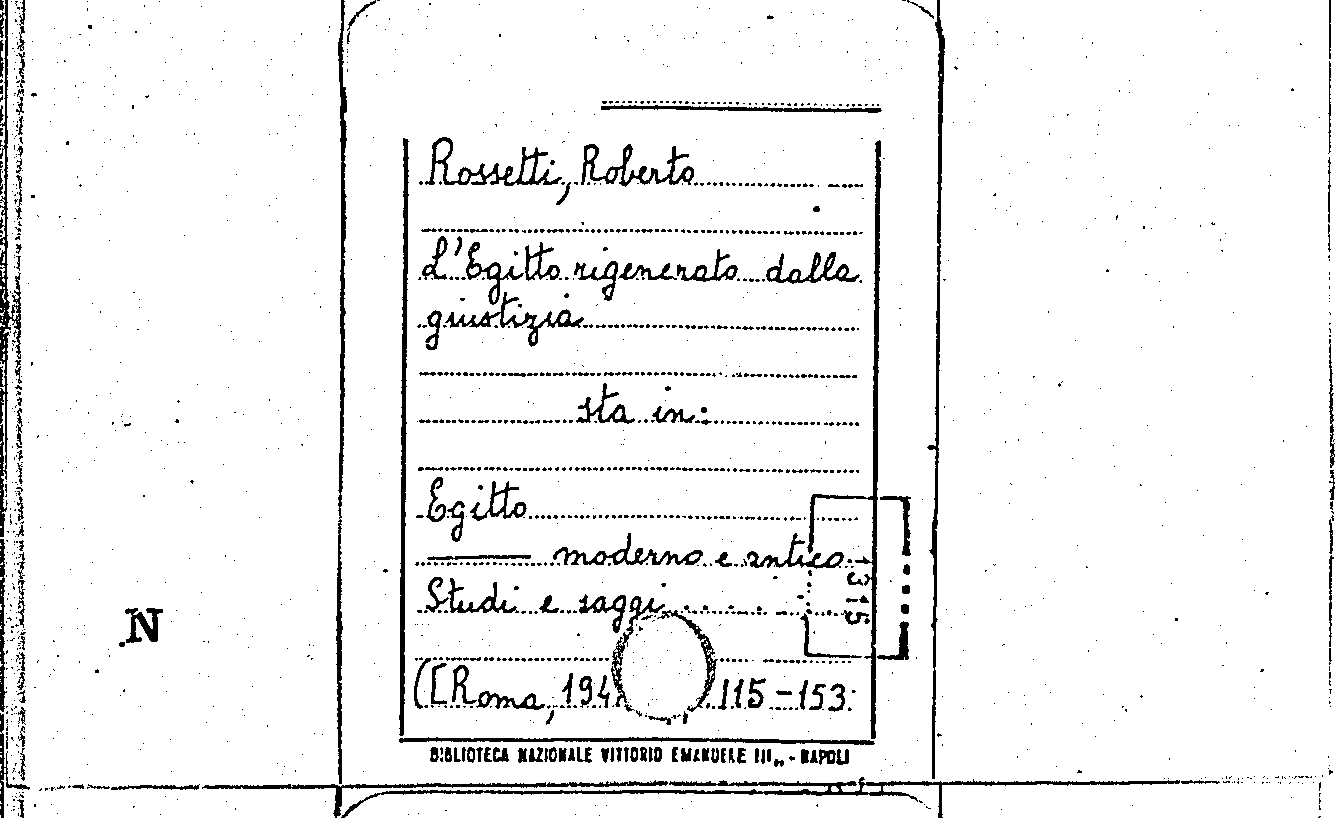 Rossetti, Roberto
L'Egitto rigenerato dalla
giustizia
sta in:
Egitto
——— moderno e antico.
Studi e saggi . . . . . .
1315
N
([Roma, 194 .115-153.
BIBLIOTECA NAZIONALE VITTORIO EMANUELE III„ - NAPOLI